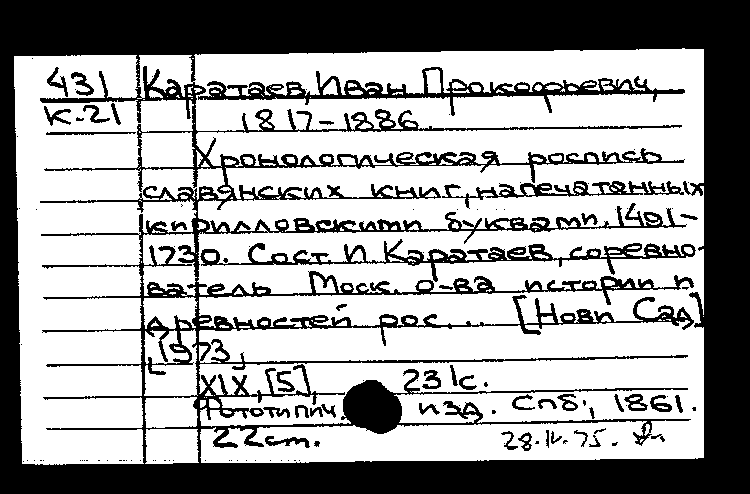 431 Каратаев, Иван Прокофьевич,
К-21 1817-1886.
Хронологическая роспись
славянских книг, напечатанных
кирилловскими буквами. 1491-
1730. Сост. И. Каратаев, соревно-
ватель Моск. о-ва истории и
древностей рос... [Нови Сад]
[1973]
XIX, [5], 231с.
Фототипич. изд. Спб., 1861.
22 cm. 28.IV.75.